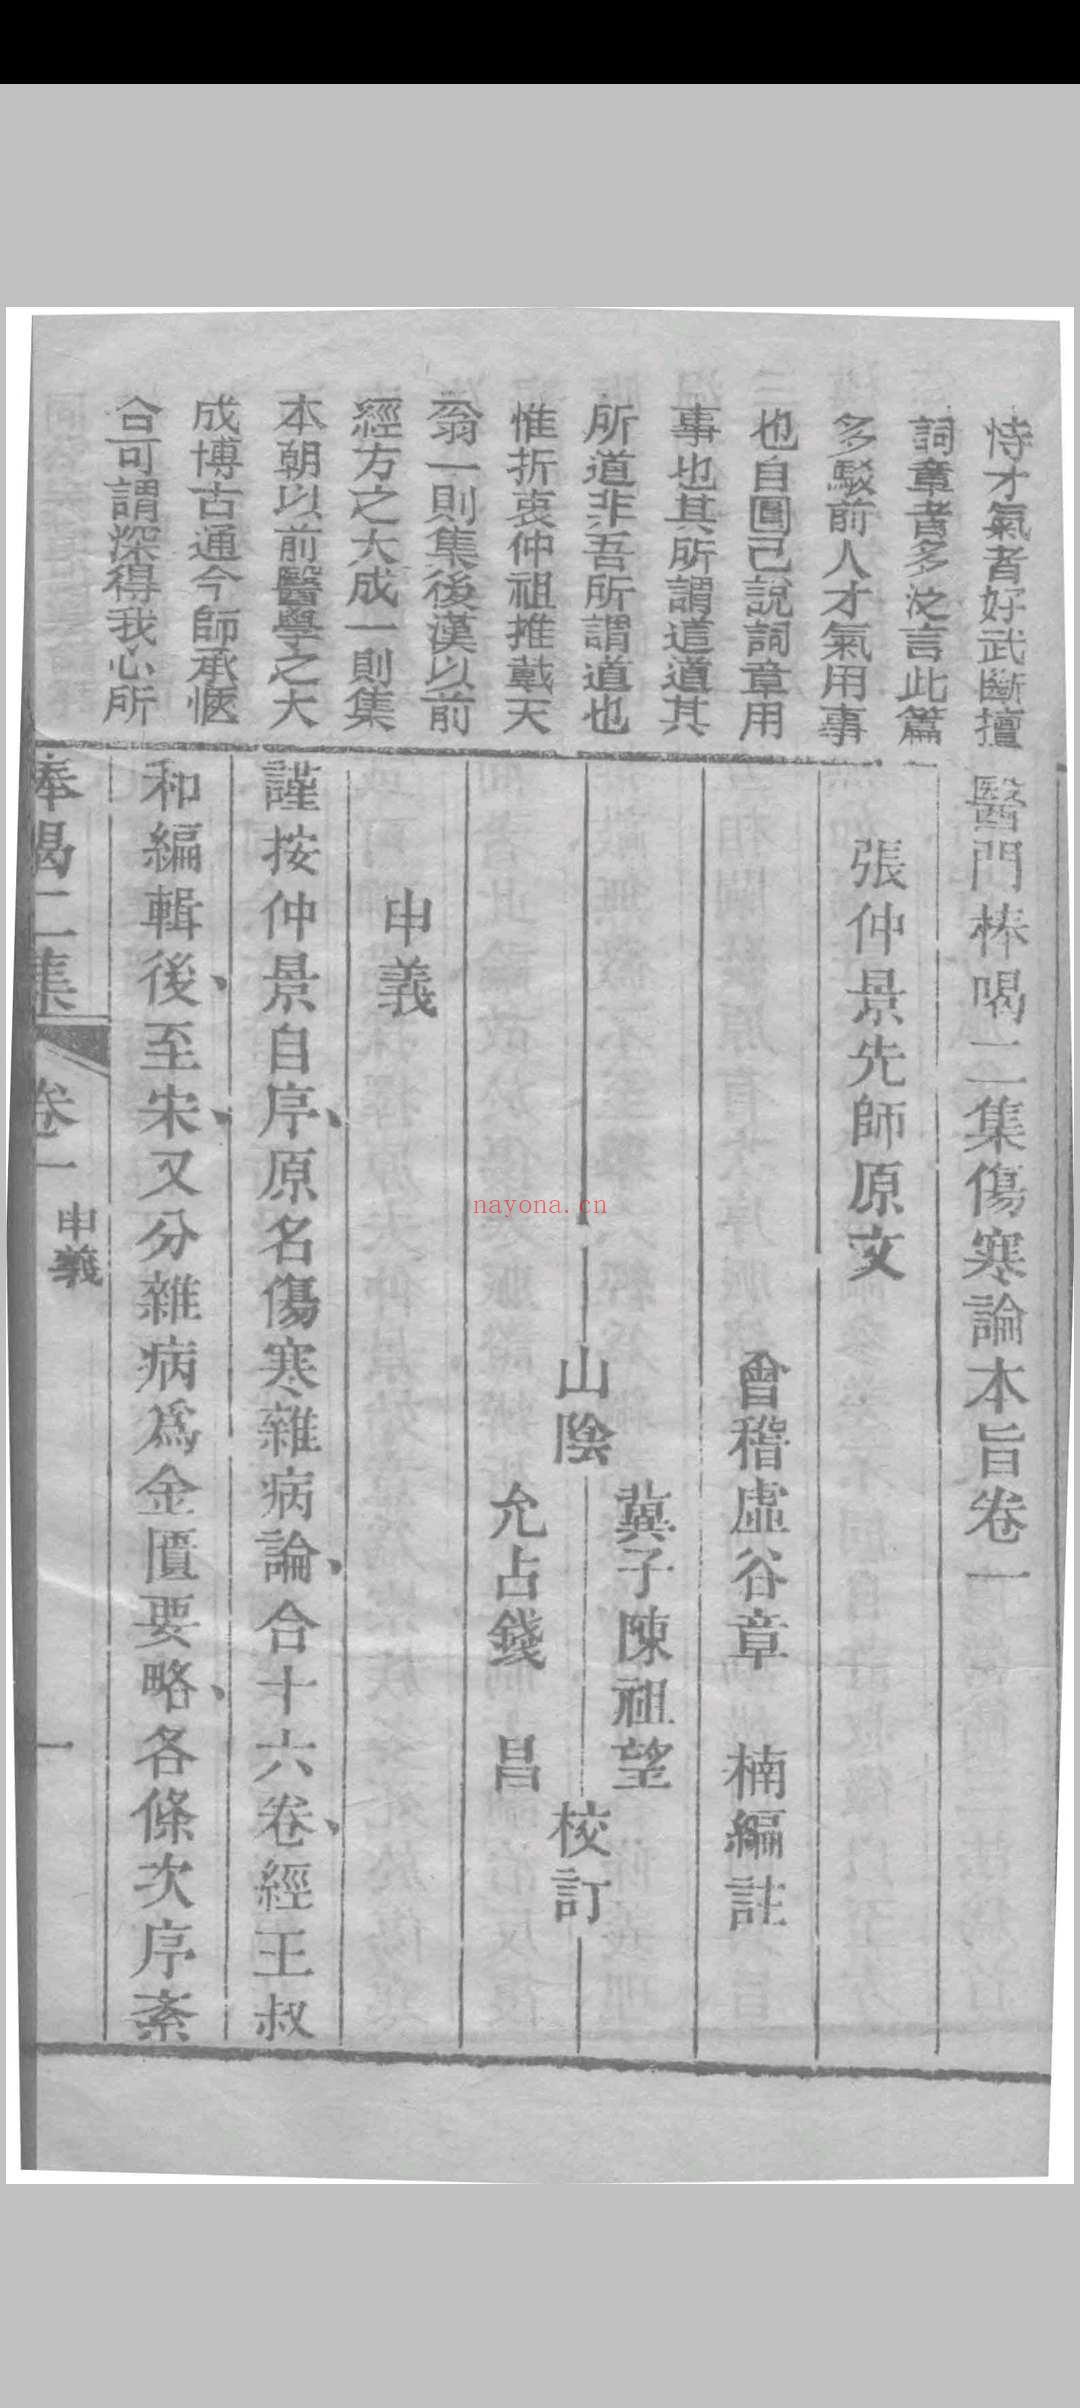 恃才氣者好武斷擅
詞章者多泛言此篇
多駁前人才氣用事
也自圓己說詞章用
事也其所謂道道其
所道非吾所謂道也
惟折衷仲祖推戴天
翁一則集後漢以前
經方之大成一則集
本朝以前醫學之大
成博古通今師承愜
合可謂深得我心所
醫門棒喝二集傷寒論本旨卷一
張仲景先師原文
會稽虛谷章 楠編註
山陰
蓂子陳祖望
允占錢 昌
校訂
申義
謹按仲景自序、原名傷寒雜病論、合十六卷、經王叔
和編輯後、至宋、又分雜病爲金匱要略、各條次序紊
棒喝二集 卷一 申義 一
nayona.cn